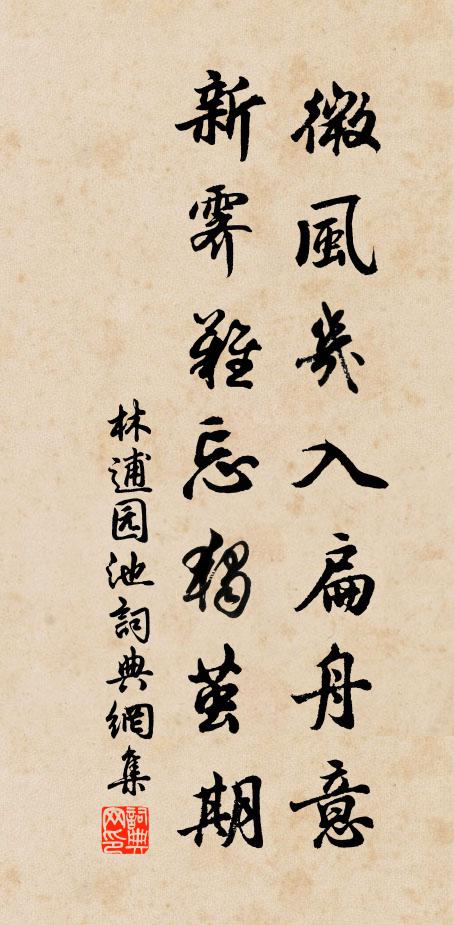 微風幾入扁舟意
新霽難忘獨茧期
林逋园池詞典網集
詞典网印